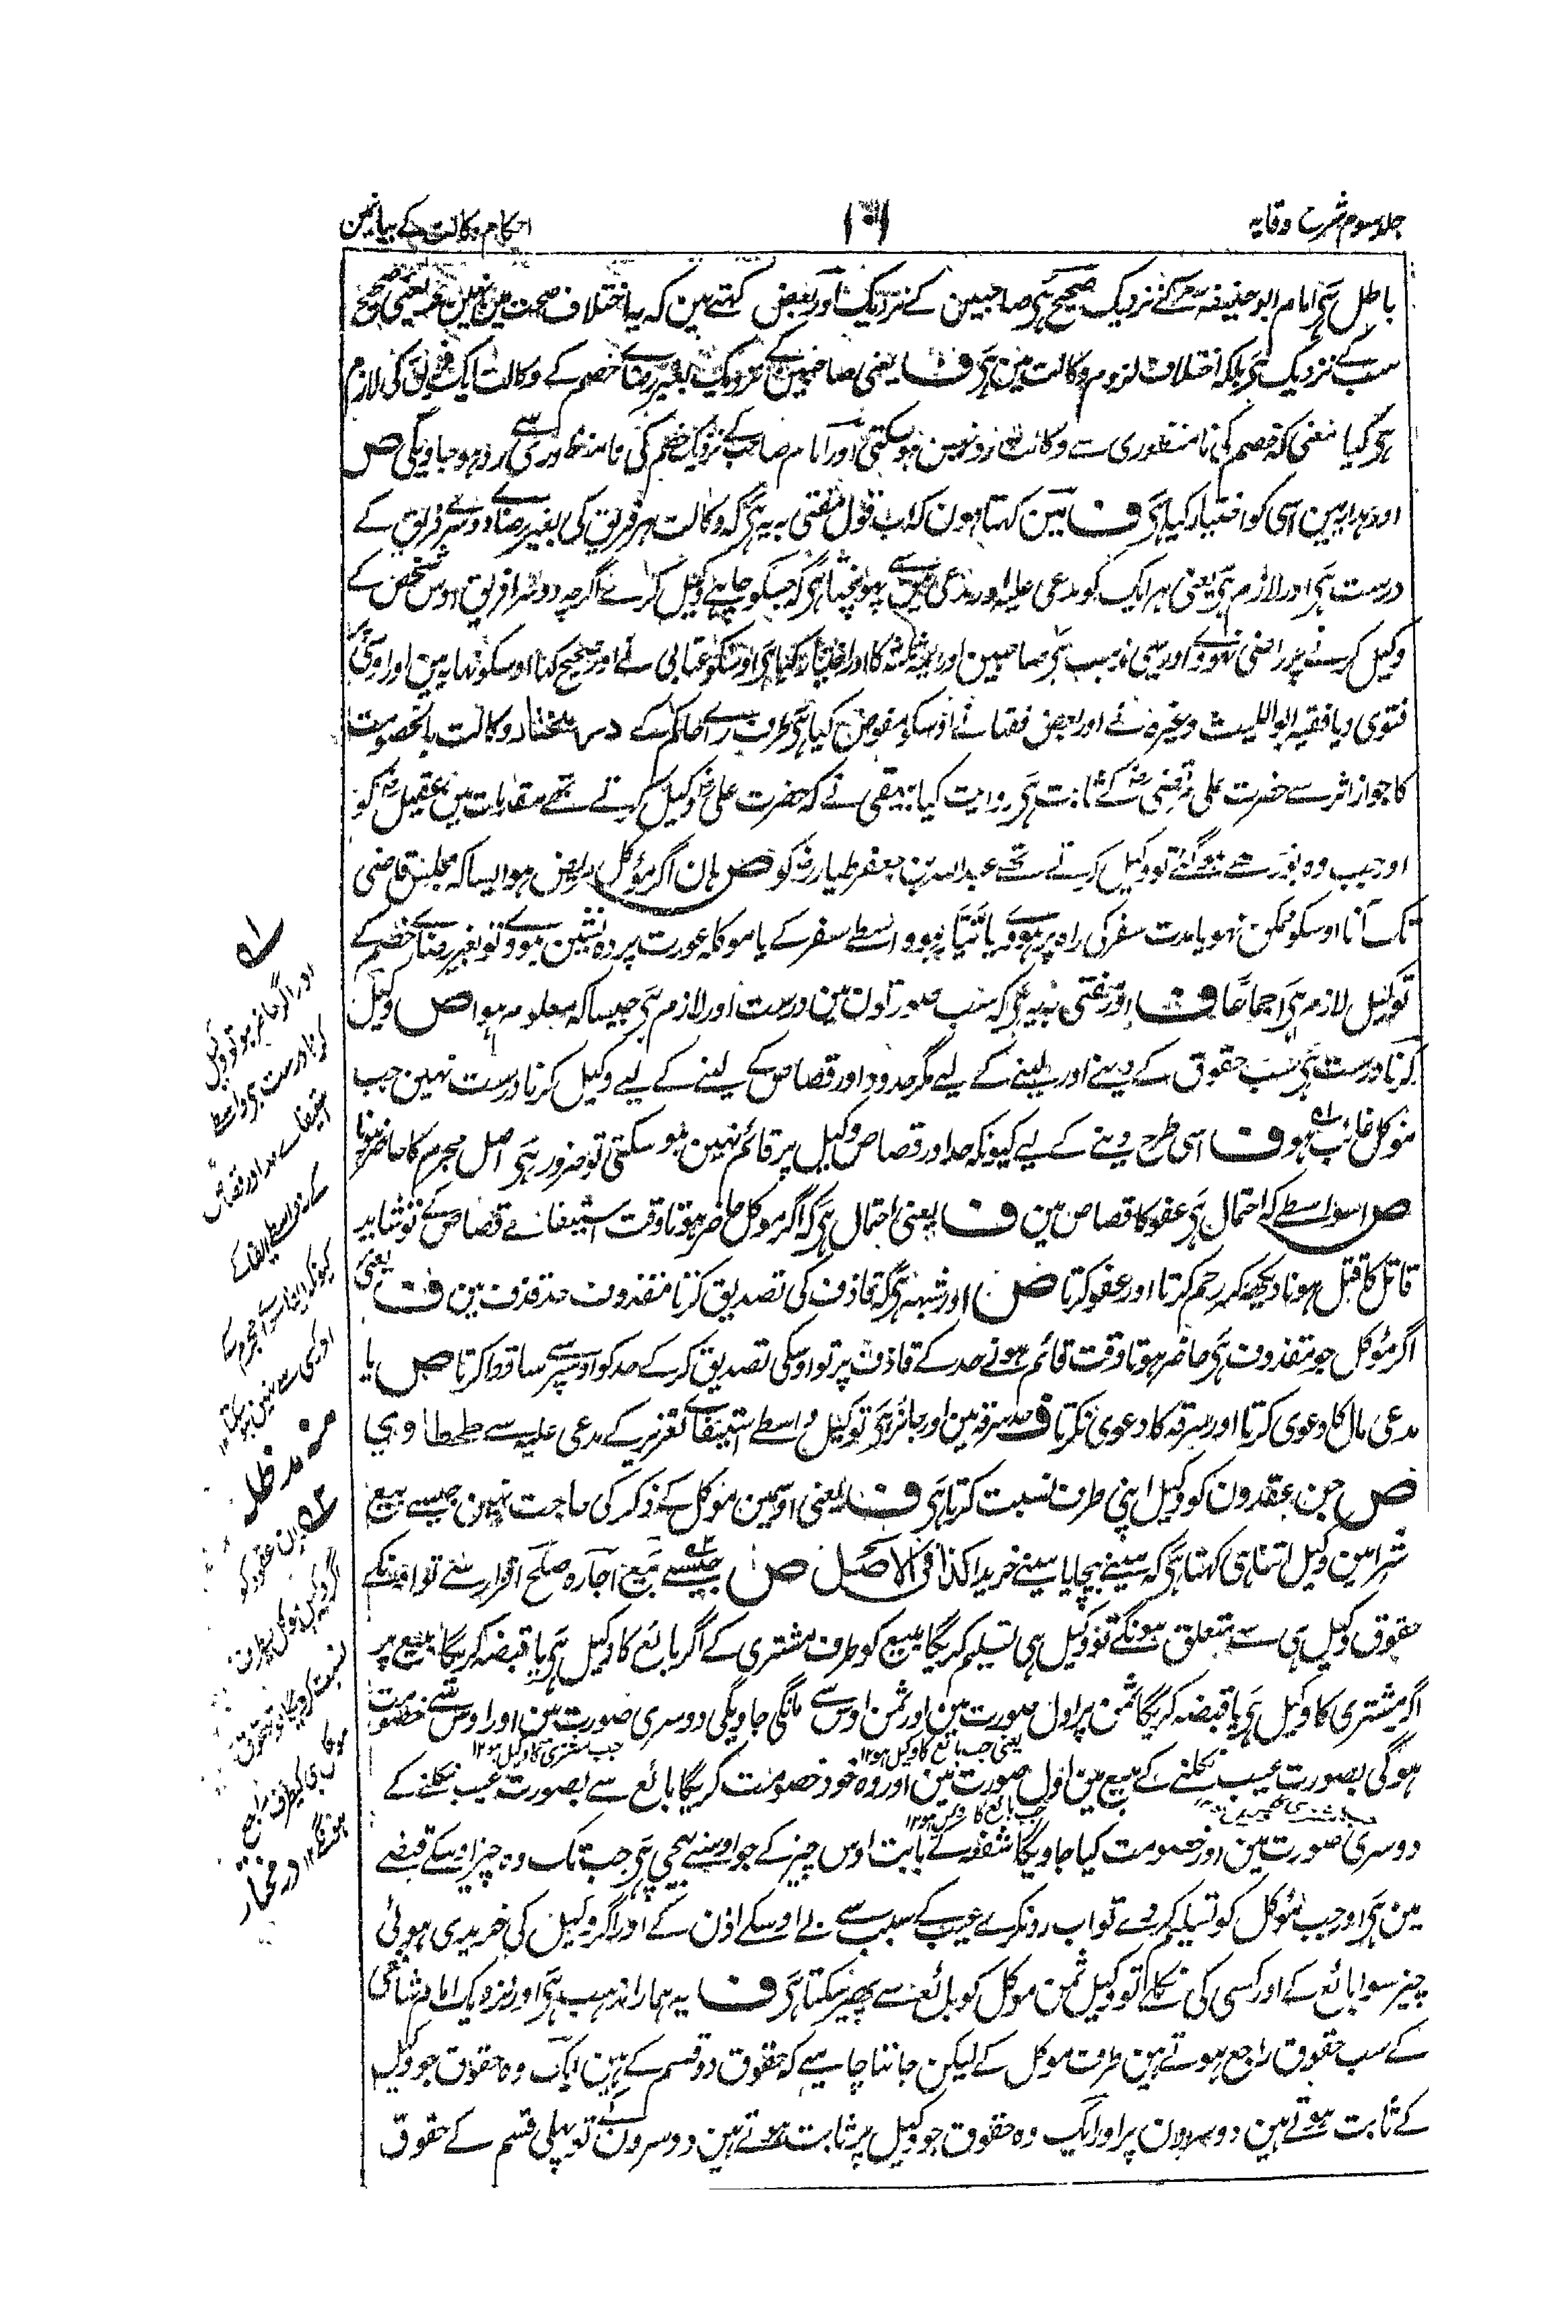 جلد سوم شرح وقایہ
۱۰۱
احکام وکالت کے بیانمین
باطل ہی امام ابو حنیفہ کے نزدیک صحیح ہی صاحبین کے نزدیک اور بعض کہتے ہین کہ یہ اختلاف صحت مین نہین ہی یعنی صحیح
سب کے نزدیک ہی بلکہ اختلاف لزوم وکالت مین ہی ف یعنی صاحبین کے نزدیک بغیر رضاے خصم کے وکالت ایک فریق کی لازم
ہی گیا معنی کہ خصم کی نامنظوری سے وکالت رد نہین ہو سکتی اور امام صاحب کے نزدیک خصم کی نامنظوری سے رد ہو جاویگی ص
اور ہدایہ مین اسی کو اختیار کیا ہی ف مین کہتا ہون کہ اب قول مفتی بہ یہ ہی کہ وکالت ہر فریق کی بغیر رضا دوسرے فریق کے
درست ہی اور لازم ہی یعنی ہر ایک کو مدعی علیہ اور مدعی مین سے پہونچتا ہی کہ جسکو چاہے وکیل کرے اگرچہ دوسرا فریق اوس شخص کے
وکیل کرنے پر راضی نہووے اور یہی مذہب ہی صاحبین اور ائمہ ثلثہ کا اور اختیار کیا ہی اوسکو عتابی نے اور صحیح کہا اوسکو نہایہ مین اور اوسی پر
فتوی دیا فقیہ ابو اللیث وغیرہ نے اور بعض فقہا نے اوسکو مفوض کیا ہی طرف راے حاکم کے در مختار وکالت بالخصومت
کا جواز اثر سے حضرت علی مرتضی کے ثابت ہی روایت کیا بیہقی نے کہ حضرت علی وکیل کرتے تھے مقدمات مین عقیل کو
اور جب وہ بوڑھے ہو گئے تو وکیل کرتے تھے عبد اللہ بن جعفر طیار کو ص ہان اگر موکل مریض ہو ایسا کہ مجلس قاضی
تک آنا اوسکو ممکن نہو یا مدت سفر کی راہ پر ہووے یا تیار ہو واسطے سفر کے یا موکلہ عورت پردہ نشین ہووے تو بغیر رضاے خصم کے
توکیل لازم ہی اجماعا ف اور مفتی بہ یہ ہی کہ سب صورتون مین درست اور لازم ہی جیسا کہ معلوم ہوا ص وکیل
کرنا درست ہی سب حقوق کے دینے اور لینے کے لیے مگر حدود اور قصاص کے لینے کے لیے وکیل کرنا درست نہین جب
موکل غائب ہو ف اسی طرح دینے کے لیے کیونکہ حد اور قصاص وکیل پر قائم نہین ہو سکتی تو ضرور ہی اصل مجرم کا حاضر ہونا
ص اسواسطے کہ احتمال ہی عفو کا قصاص مین ف یعنی احتمال ہی کہ اگر موکل حاضر ہوتا وقت استیفاے قصاص کے تو شاید
قاتل کا قتل ہونا دیکھ کر رحم کرتا اور عفو کرتا ص اور شبہہ ہی کہ قاذف کی تصدیق کرتا مقذوف حد قذف مین ف یعنی
اگر موکل جو مقذوف ہی حاضر ہوتا وقت قائم ہونے حد کے قاذف پر تو اوسکی تصدیق کر کے حد کو اوسپر سے ساقط کرتا ص یا
مدعی مال کا دعوی کرتا اور سرقہ کا دعوی نکرتا ف حد سرقہ مین اور جائز ہی توکیل واسطے استیفاے تعزیر کے مدعی علیہ سے طحطاوی
ص جن عقدون کو وکیل اپنی طرف نسبت کرتا ہی ف یعنی اوسمین موکل کے ذکر کی حاجت نہین جیسے بیع
شرا مین وکیل اتنا ہی کہتا ہی کہ مینے بیچا یا مینے خریدا کذا فی الاصل ص جیسے بیع اجارہ صلح اقرار سے تو اونکے
حقوق وکیل ہی سے متعلق ہونگے تو وکیل ہی تسلیم کریگا مبیع کو طرف مشتری کے اگر بائع کا وکیل ہی یا قبضہ کریگا مبیع پر
اگر مشتری کا وکیل ہی یا قبضہ کریگا ثمن پر اول صورت مین اور ثمن اوس سے مانگی جاویگی دوسری صورت مین اور اوس سے خصومت
یعنی جب بائع کا وکیل ہو ۱۲
جب مشتری کا وکیل ہو ۱۲
ہوگی بصورت عیب نکلنے کے مبیع مین اول صورت مین اور وہ خود خصومت کریگا بائع سے بصورت عیب نکلنے کے
جب بائع کا وکیل ہو ۱۲
دوسری صورت مین اور خصومت کیا جاویگا شفعہ کے بابت اوس چیز کے جو اوسنے بیچی ہی جب تک وہ چیز اوسکے قبضے
مین ہی اور جب موکل کو تسلیم کر دے تو اب رد نکرے عیب کے سبب سے بے اوسکے اذن کے اور اگر وکیل کی خریدی ہوئی
چیز سوا بائع کے اور کسی کی نکلے تو وکیل ثمن موکل کو بائع سے پھیر سکتا ہی ف یہ ہمارا مذہب ہی اور نزدیک امام شافعی
کے سب حقوق راجع ہوتے ہین طرف موکل کے لیکن جاننا چاہیے کہ حقوق دو قسم کے ہین ایک وہ حقوق جو وکیل
کے ثابت ہوتے ہین دوسرون پر اور ایک وہ حقوق جو وکیل پر ثابت ہوتے ہین دوسرون کے تو پہلی قسم کے حقوق
اور اگر حاضر ہو تو وکیل
کرنا درست ہی واسطے
استیفاے حد اور قصاص
کے نہ واسطے ایفا کے
کیونکہ ایفا سواے مجرم کے
اور کسی سے نہین ہو سکتا ۱۲
منہ مد ظلہ
ان عقود کو
اگر وکیل موکل کی طرف
نسبت کریگا تو حقوق
موکل ہی کیطرف راجع
ہونگے ۱۲ در مختار